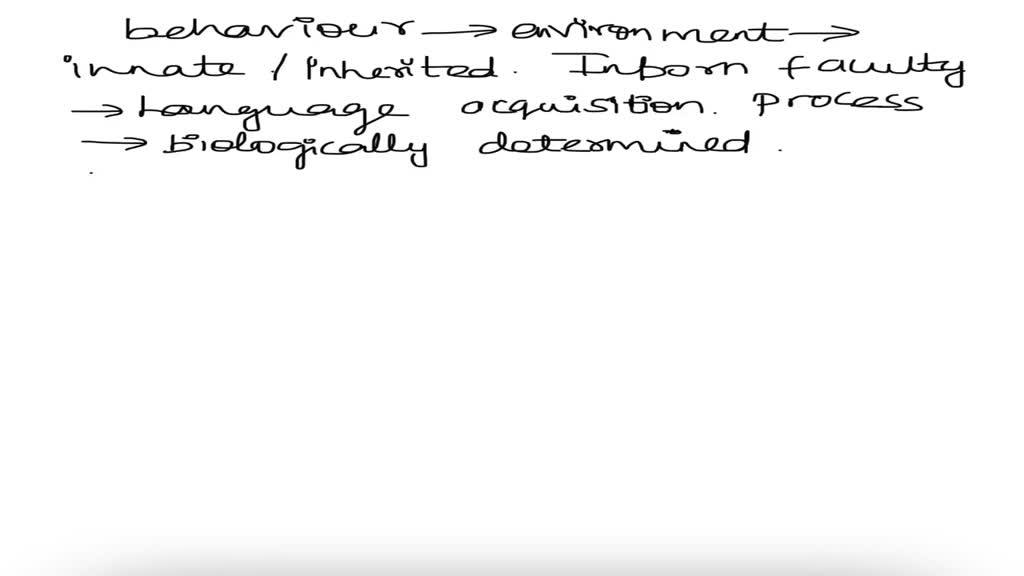 behaviour → environment →
innate / Inherited. Inborn faculty
→ Language acquisition. process
→ Biologically determined.